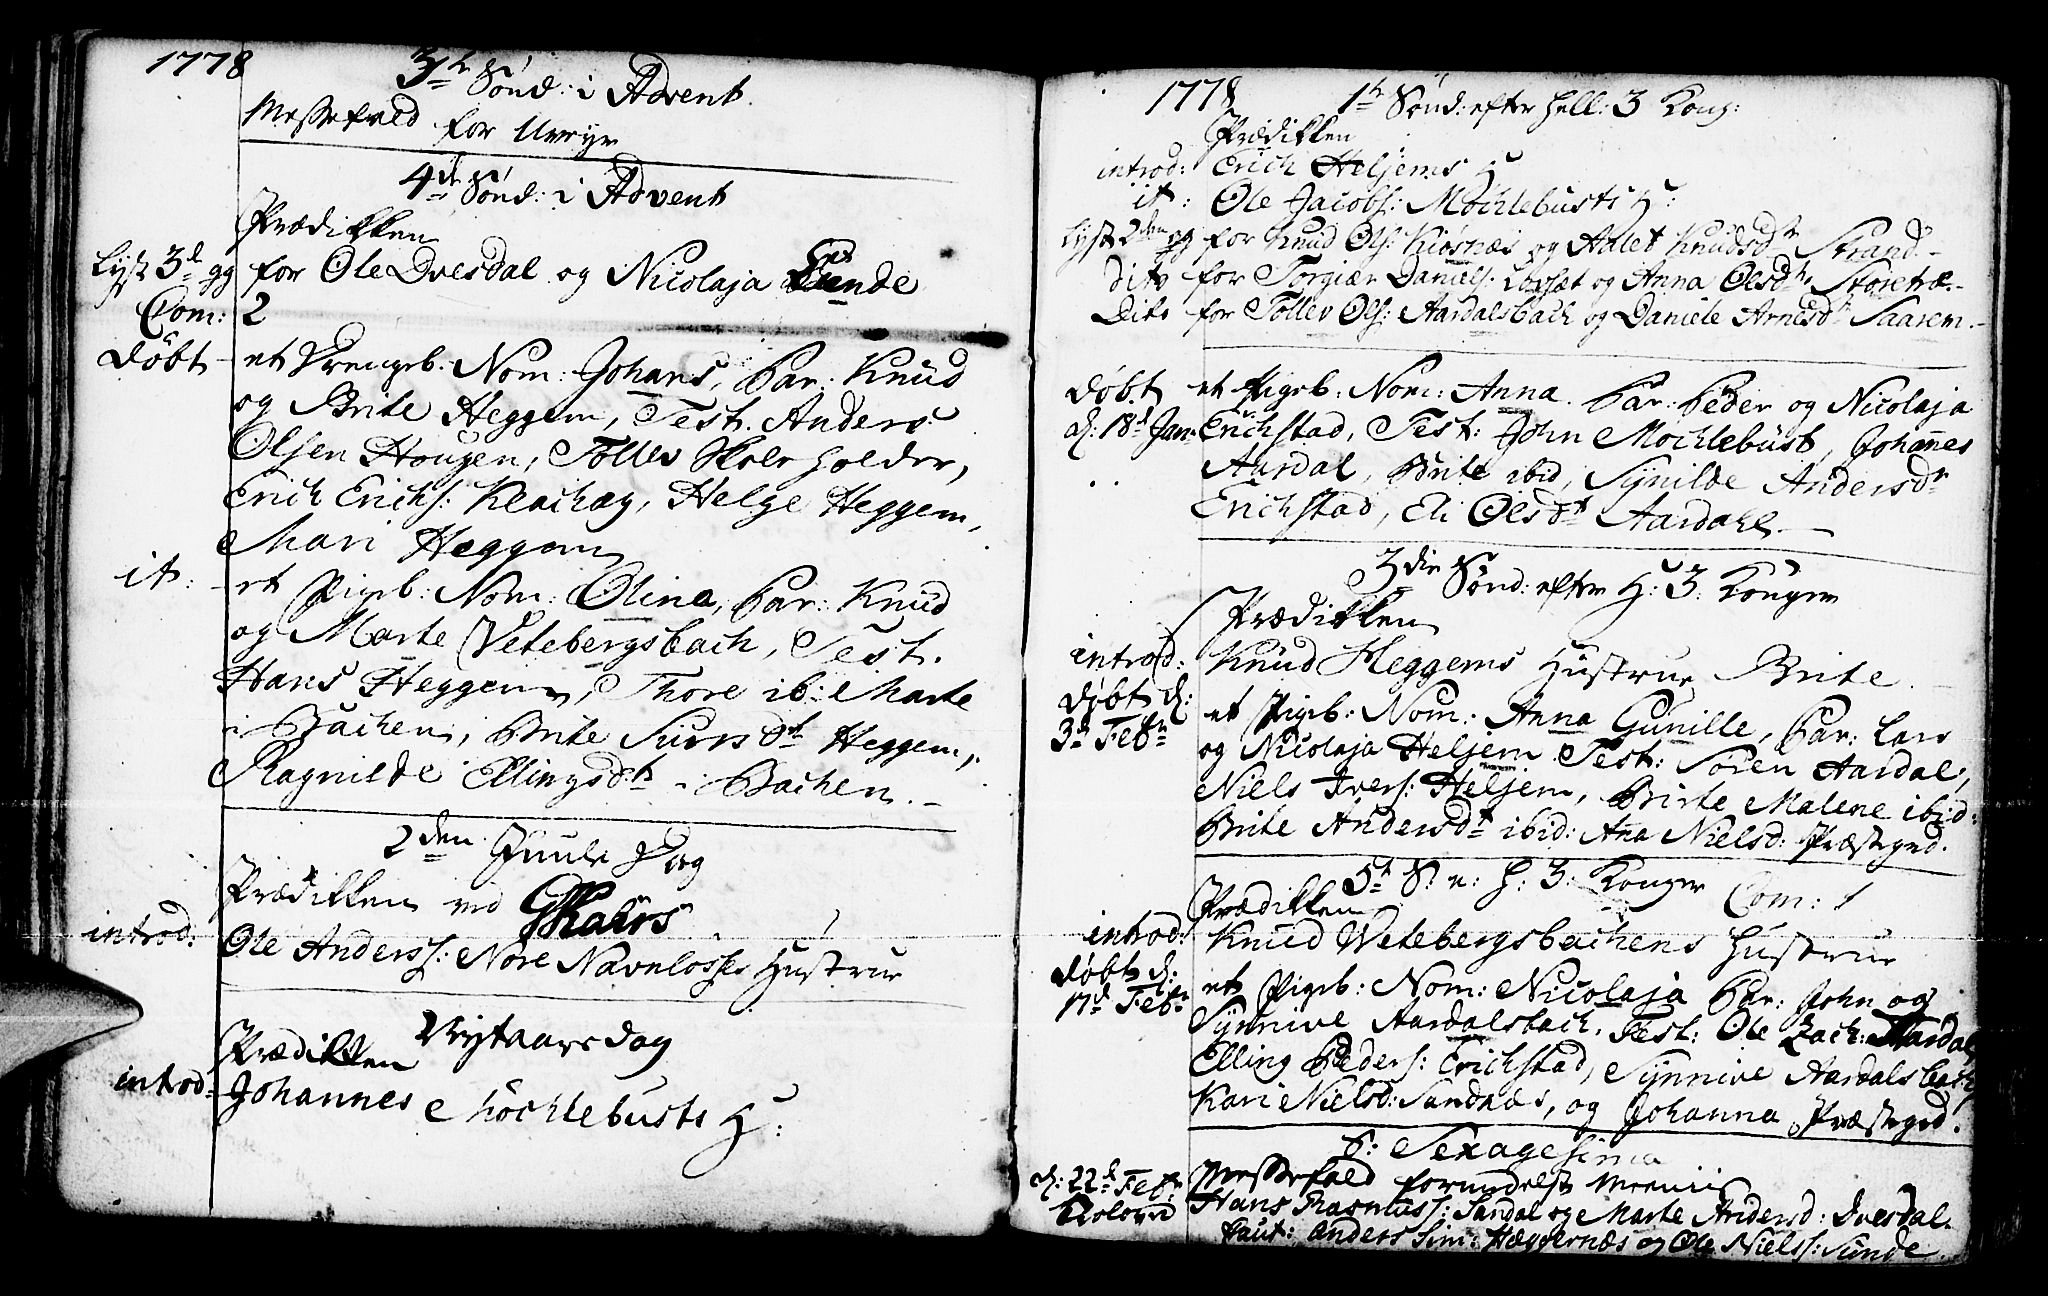 1778
3de Sønd: i Advent.
Messefald for Uveyr
4de Sønd: i Advent
Prædikken
Lyst 3de gg for Ole Dvesdal og Nicolaja Sunde
Com: 2
døbt et Drengeb. Nom: Johans, Par: Knud
og Brite Heggem, Test. Anders
Olsen Hougen, Tollev Skoleholder,
Erich Erichs: Klachæg, Helge Heggem,
Mari Heggem
it: et Pigeb: Nom: Olina, Par: Knud
og Marte Vetebergsbach, Test.
Hans Heggem, Thore ib: Marte
i Bachen, Brite Siursdtr Heggem,
Ragnilde Ellingsdtr i Bachen.
2den Juule Dag
Prædikken ved
introd: Ole Anderss: Nore Navnløsses Hustrue
Nytaarsdag
Prædikken
introd: Johannes Møchlebusts H:
1778
1te Sønd: efter Hell: 3 Kong:
Prædikken
introd: Erich Heljems H
it: Ole Jacobs: Møchlebusts H:
Lyst 2den gg for Knud Ols: Kiøsnæs og Adlet Knudsdtr Strand.
dito for Torgiær Daniels: Løvsæt og Anna Olsdtr Støretræ.
Dito for Tollev Ols: Aardalsbach og Daniele Arnesdtr Saarem.
døbt et Pigeb: Nom: Anna. Par: Peder og Nicolaja
d: 18de Jan: Erichstad, Test: John Møchlebust, Johannes
Aardal, Brite ibid, Synilde Andersdtr
Erichstad, Eli Olsdtr Aardahl.
3die Sønd: efter H: 3 Konger
Prædikken
introd: Knud Heggems Hustrue Brite
døbt d: et Pigeb: Nom: Anna Gunille, Par: Lars
3de Febr og Nicolaja Heljem Test: Søren Aardal,
Niels Ivers: Heljem, Birte Malene ibid:
Brite Andersdtr ibid: Ana Nielsd: Præstegrd.
5te S. e: H: 3: Konger Com: 1
Prædikken
introd: Knud Wetebergsbachens Hustrue
døbt d: et Pigeb: Nom: Nicolaja Par: John og
17de Febr Synnive Aardalsbach, Test: Ole Zach: Aardal
Elling Peders: Erichstad, Synnive Aardalsbach,
Kari Nielsd: Sandnæs, og Johanna Præstegrd.
S: Sexagesima
Messefald formedelst
d: 22de Febr Hans Rasmuss: Sandal og Marte Andersd: Dvesdal.
Trolovd Caut: Anders Sim: Hæggernæs og Ole Nielss: Sunde.